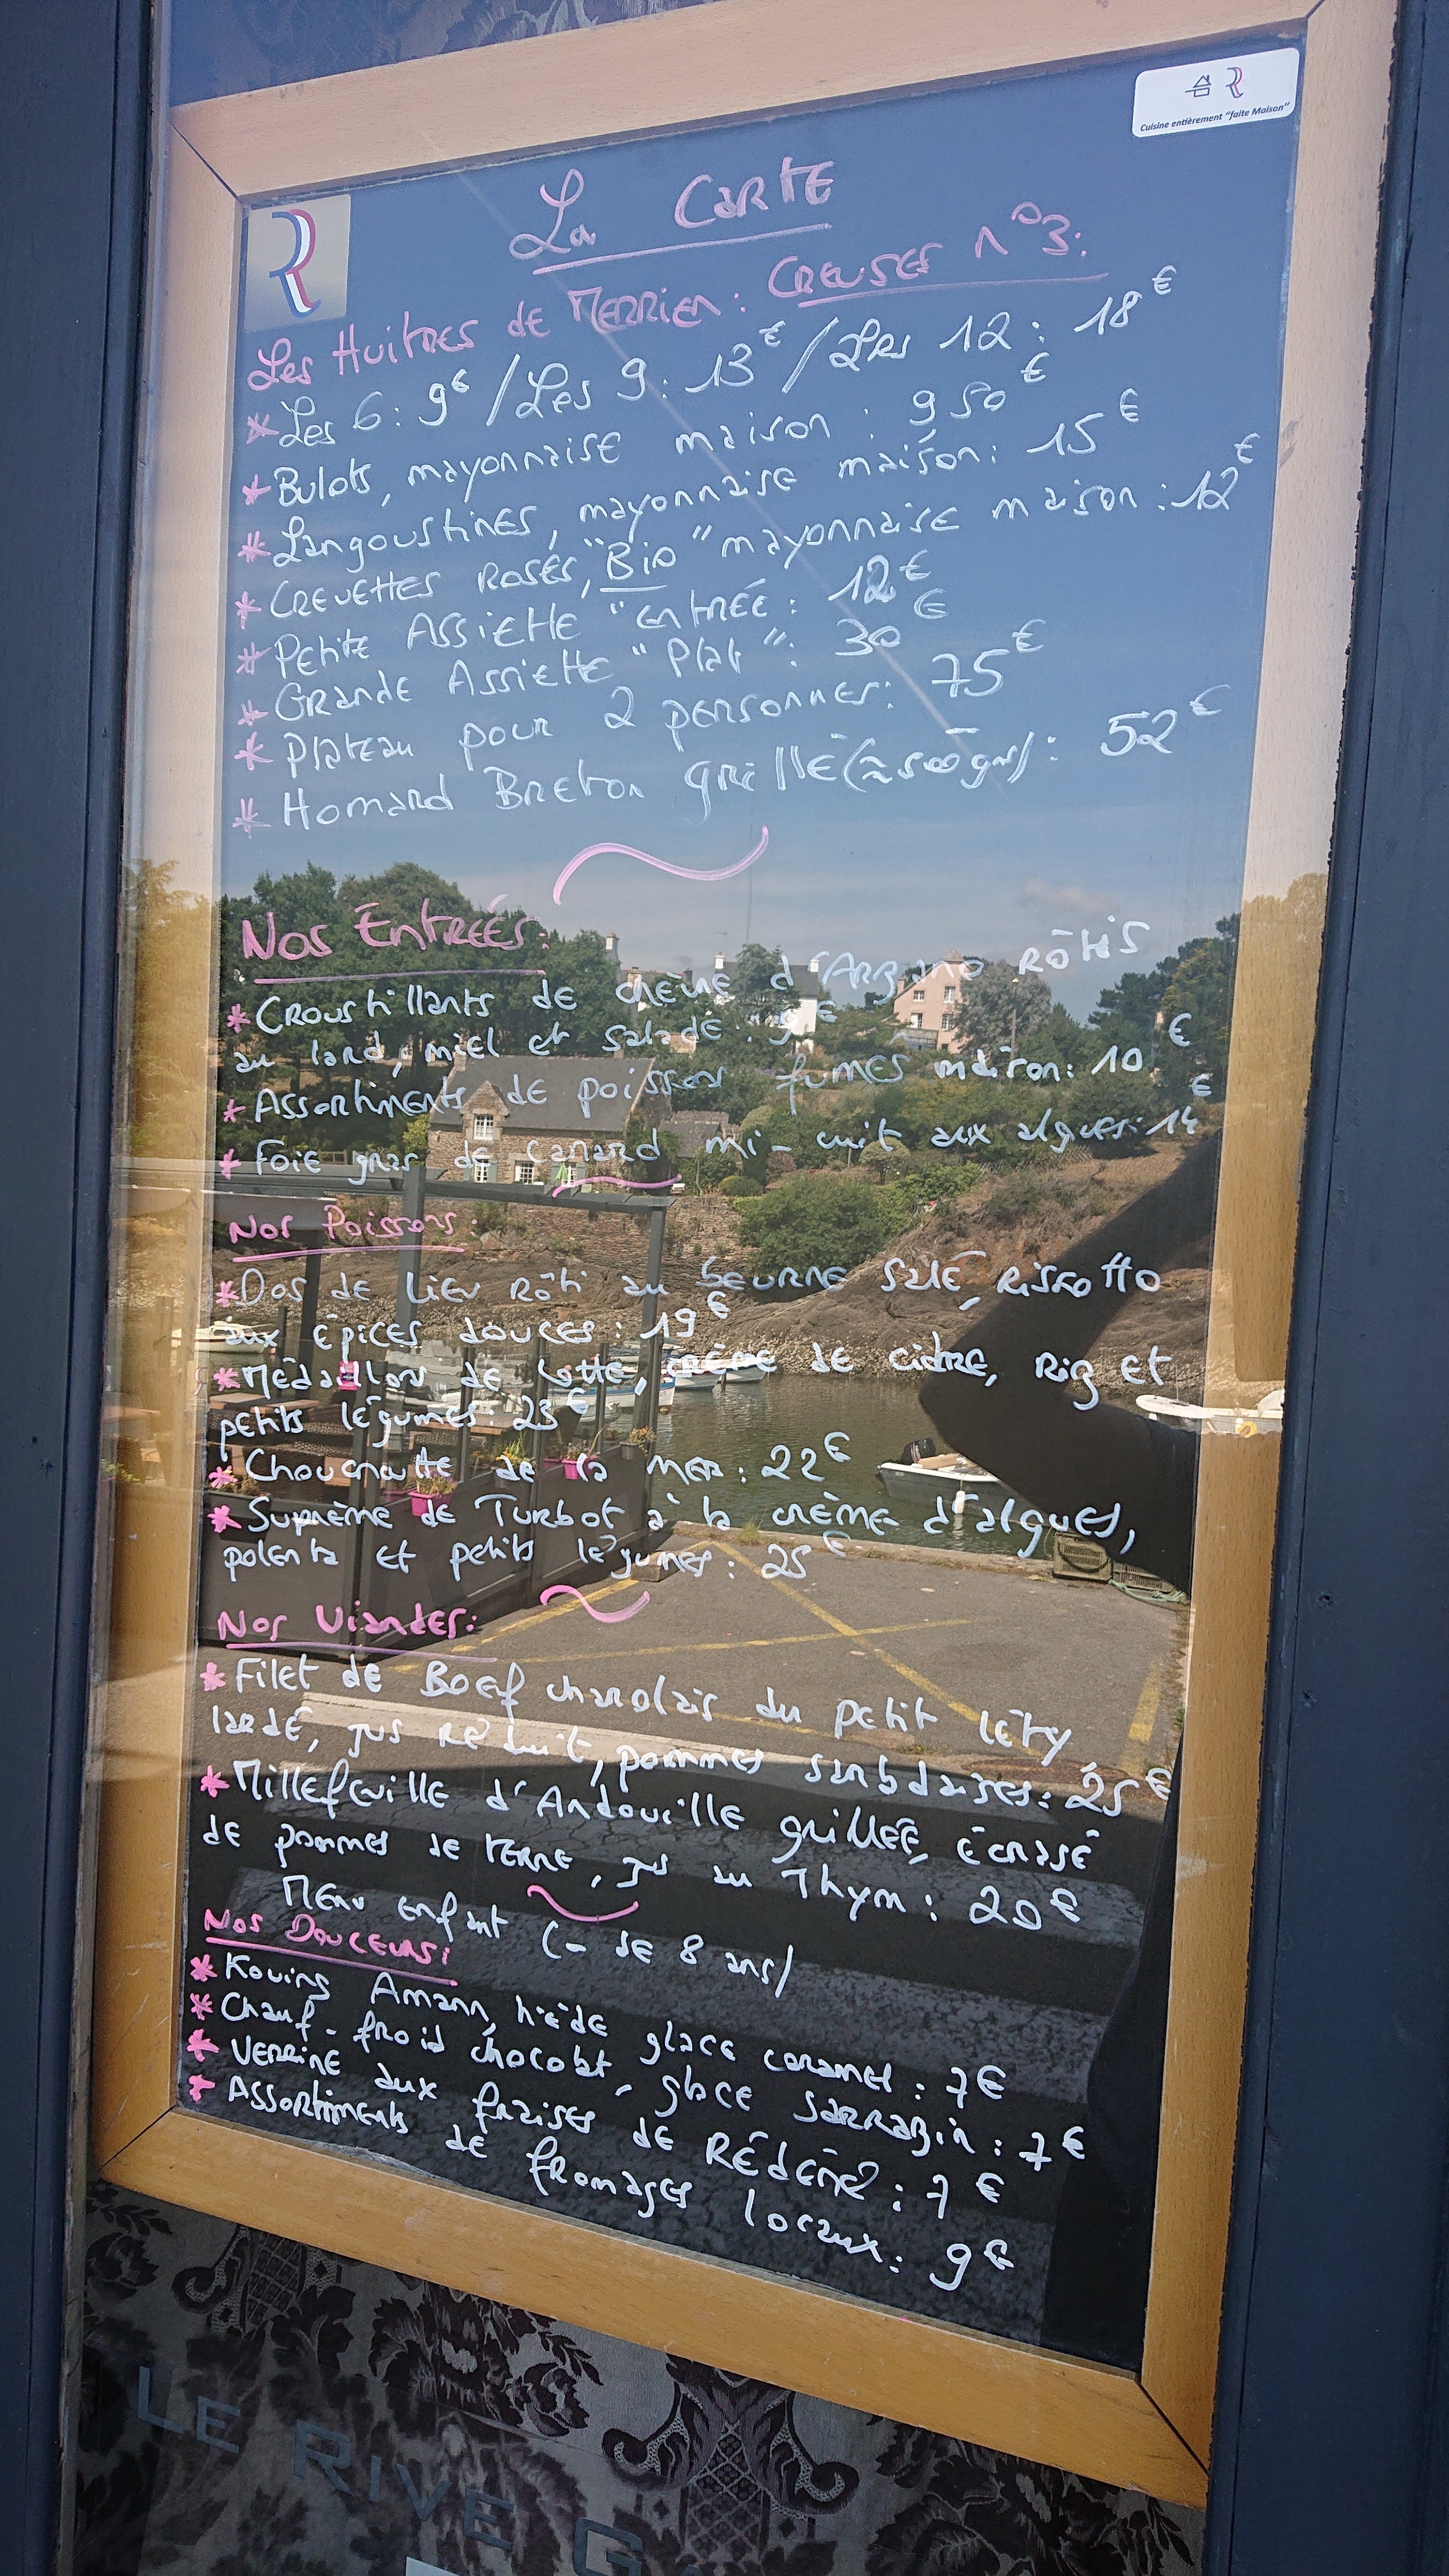 Cuisine entièrement "faite Maison"
La Carte
Les Huitres de Merrien : Creuses n°3:
* Les 6: 9€ / Les 9: 13€ / Les 12: 18€
* Bulots, mayonnaise maison : 9 50€
* Langoustines, mayonnaise maison: 15€
* Crevettes roses, "Bio" mayonnaise maison : 12€
* Petite Assiette "entrée : 12€
* Grande Assiette "Plat": 30€
* Plateau pour 2 personnes: 75€
* Homard Breton grillé (≈ 500 grs) : 52€
Nos Entrées:
* Croustillants de chèvre d'Arzano rôtis
au lard, miel et salade: 9€
* Assortiments de poissons fumés maison: 10€
* Foie gras de canard mi-cuit aux algues: 14€
Nos Poissons:
* Dos de Lieu rôti au beurre salé, Rissotto
aux épices douces: 19€
* Médaillons de lotte, crème de cidre, Riz et
petits légumes: 23€
* Choucroutte de la mer: 22€
* Suprème de Turbot à la crème d'algues,
polenta et petits légumes: 25€
Nos Viandes:
* Filet de Boeuf charolais du petit Léty
lardé, jus réduit, pommes sarladaises: 25€
* Millefeuille d'Andouille grillée, écrasé
de pommes de terre, jus au Thym: 20€
Menu enfant (- de 8 ans)
Nos Douceurs:
* Kouing Amann, tiède glace caramel: 7€
* Chauf-froid chocolat, glace sarrazin: 7€
* Verrine aux fraises de Rédéné: 7€
* Assortiments de fromages locaux: 9€
Le Rive Ga